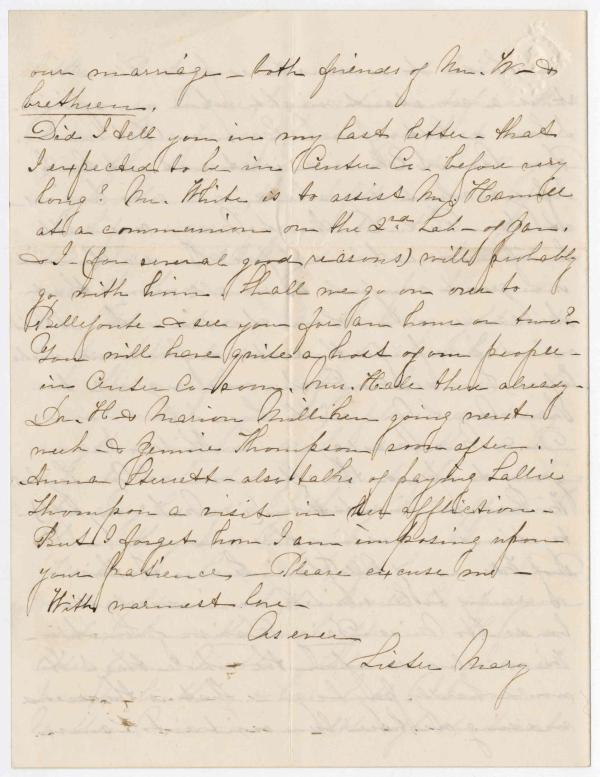 our marriage - both friends of Mr. W - &
brethren.
Did I tell you in my last letter - that
I expected to be in Center Co - before very
long? Mr. White is to assist Mr. Hamill
at a communion on the 2nd Sab - of Jan.
& I - (for several good reasons) will probably
go with him. Shall we go on over to
Bellefonte - & see you for an hour or two? -
You will have quite a host of our people -
in Center Co - soon. Mrs. Hale there already -
Dr. H & Marion Milliken going next
week - & Jennie Thompson soon after.
Anna Sterrett - also talks of paying Sallie
Thompson a visit - in her affliction -
But I forget how I am imposing upon
your patience - Please excuse me -
With warmest love -
As ever
Sister Mary